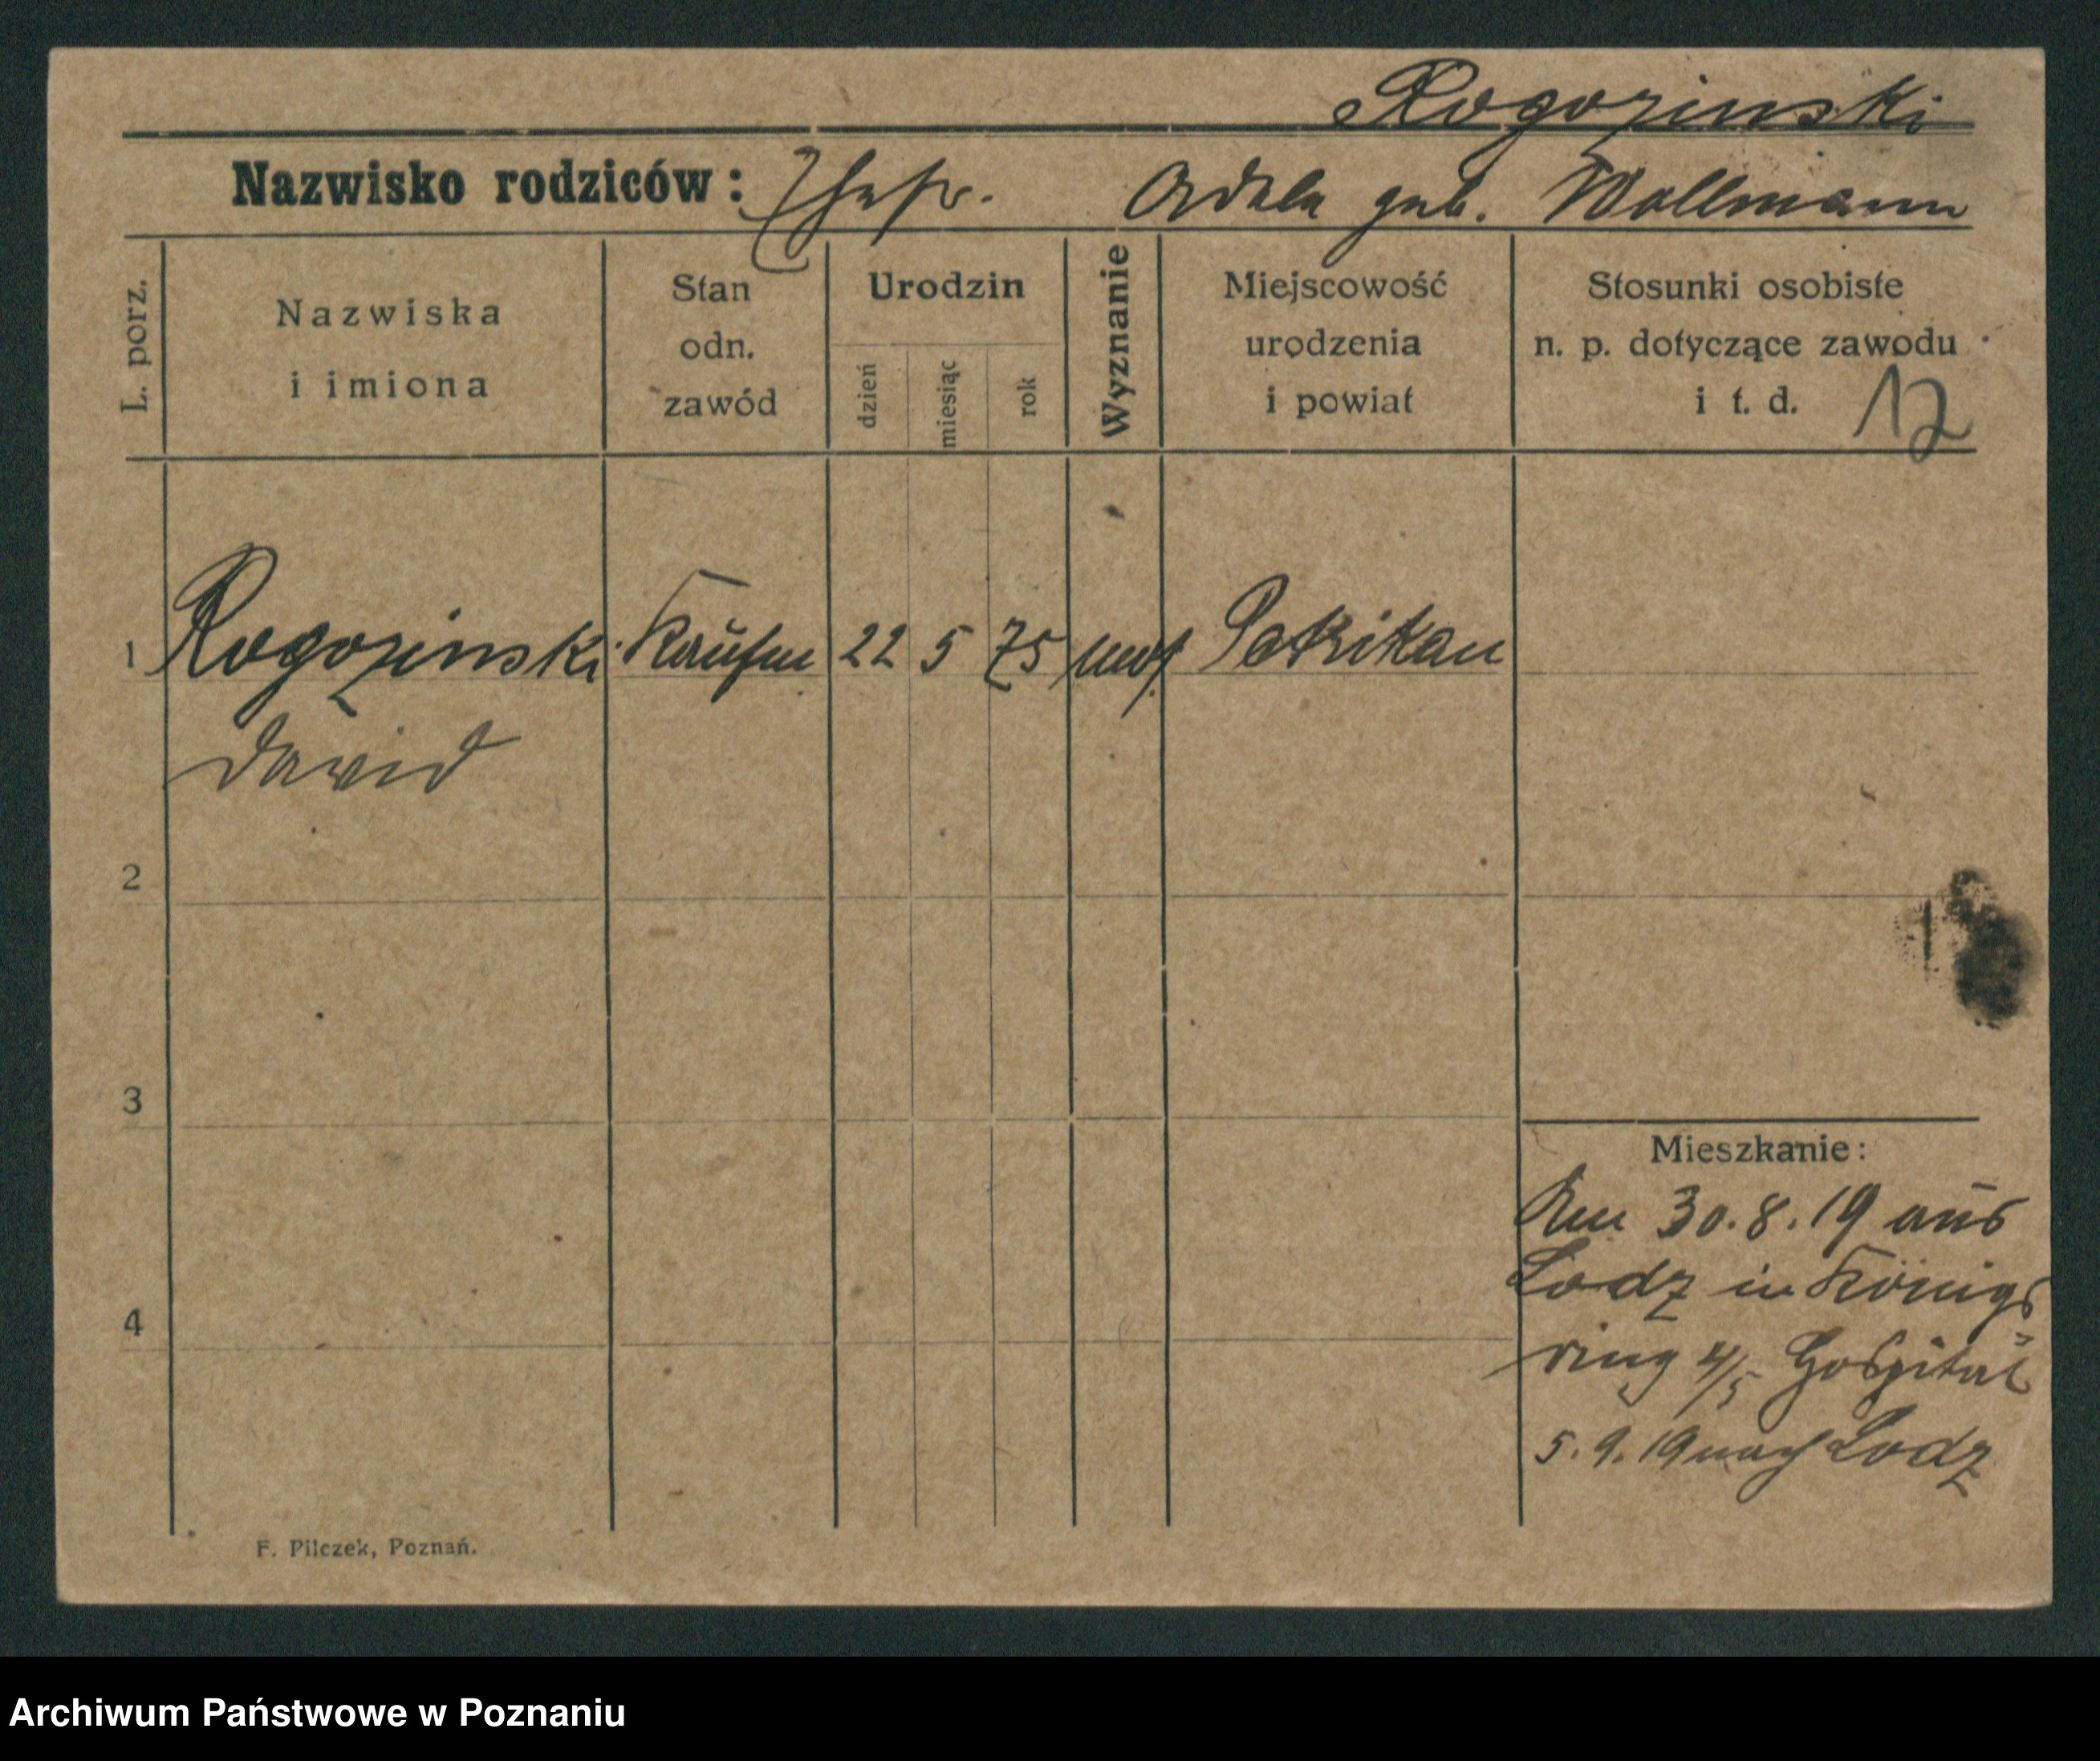 Rogozinski
Nazwisko rodziców: Adele geb. Wollmann
L. porz.
Nazwiska
i imiona
Stan
odn.
zawód
Urodzin
dzień
miesiąc
rok
Wyznanie
Miejscowość
urodzenia
i powiat
Stosunki osobiste
n. p. dotyczące zawodu
i t. d.
12
1 Rogozinski Kaufm 22 5 75 mos Petrikau
Dawid
2
3
4
Mieszkanie:
Am 30.8.19 aus
Lodz in Königs
ring 4/5 Hospital
5.9.19 nach Lodz
F. Pilczek, Poznań.
Archiwum Państwowe w Poznaniu